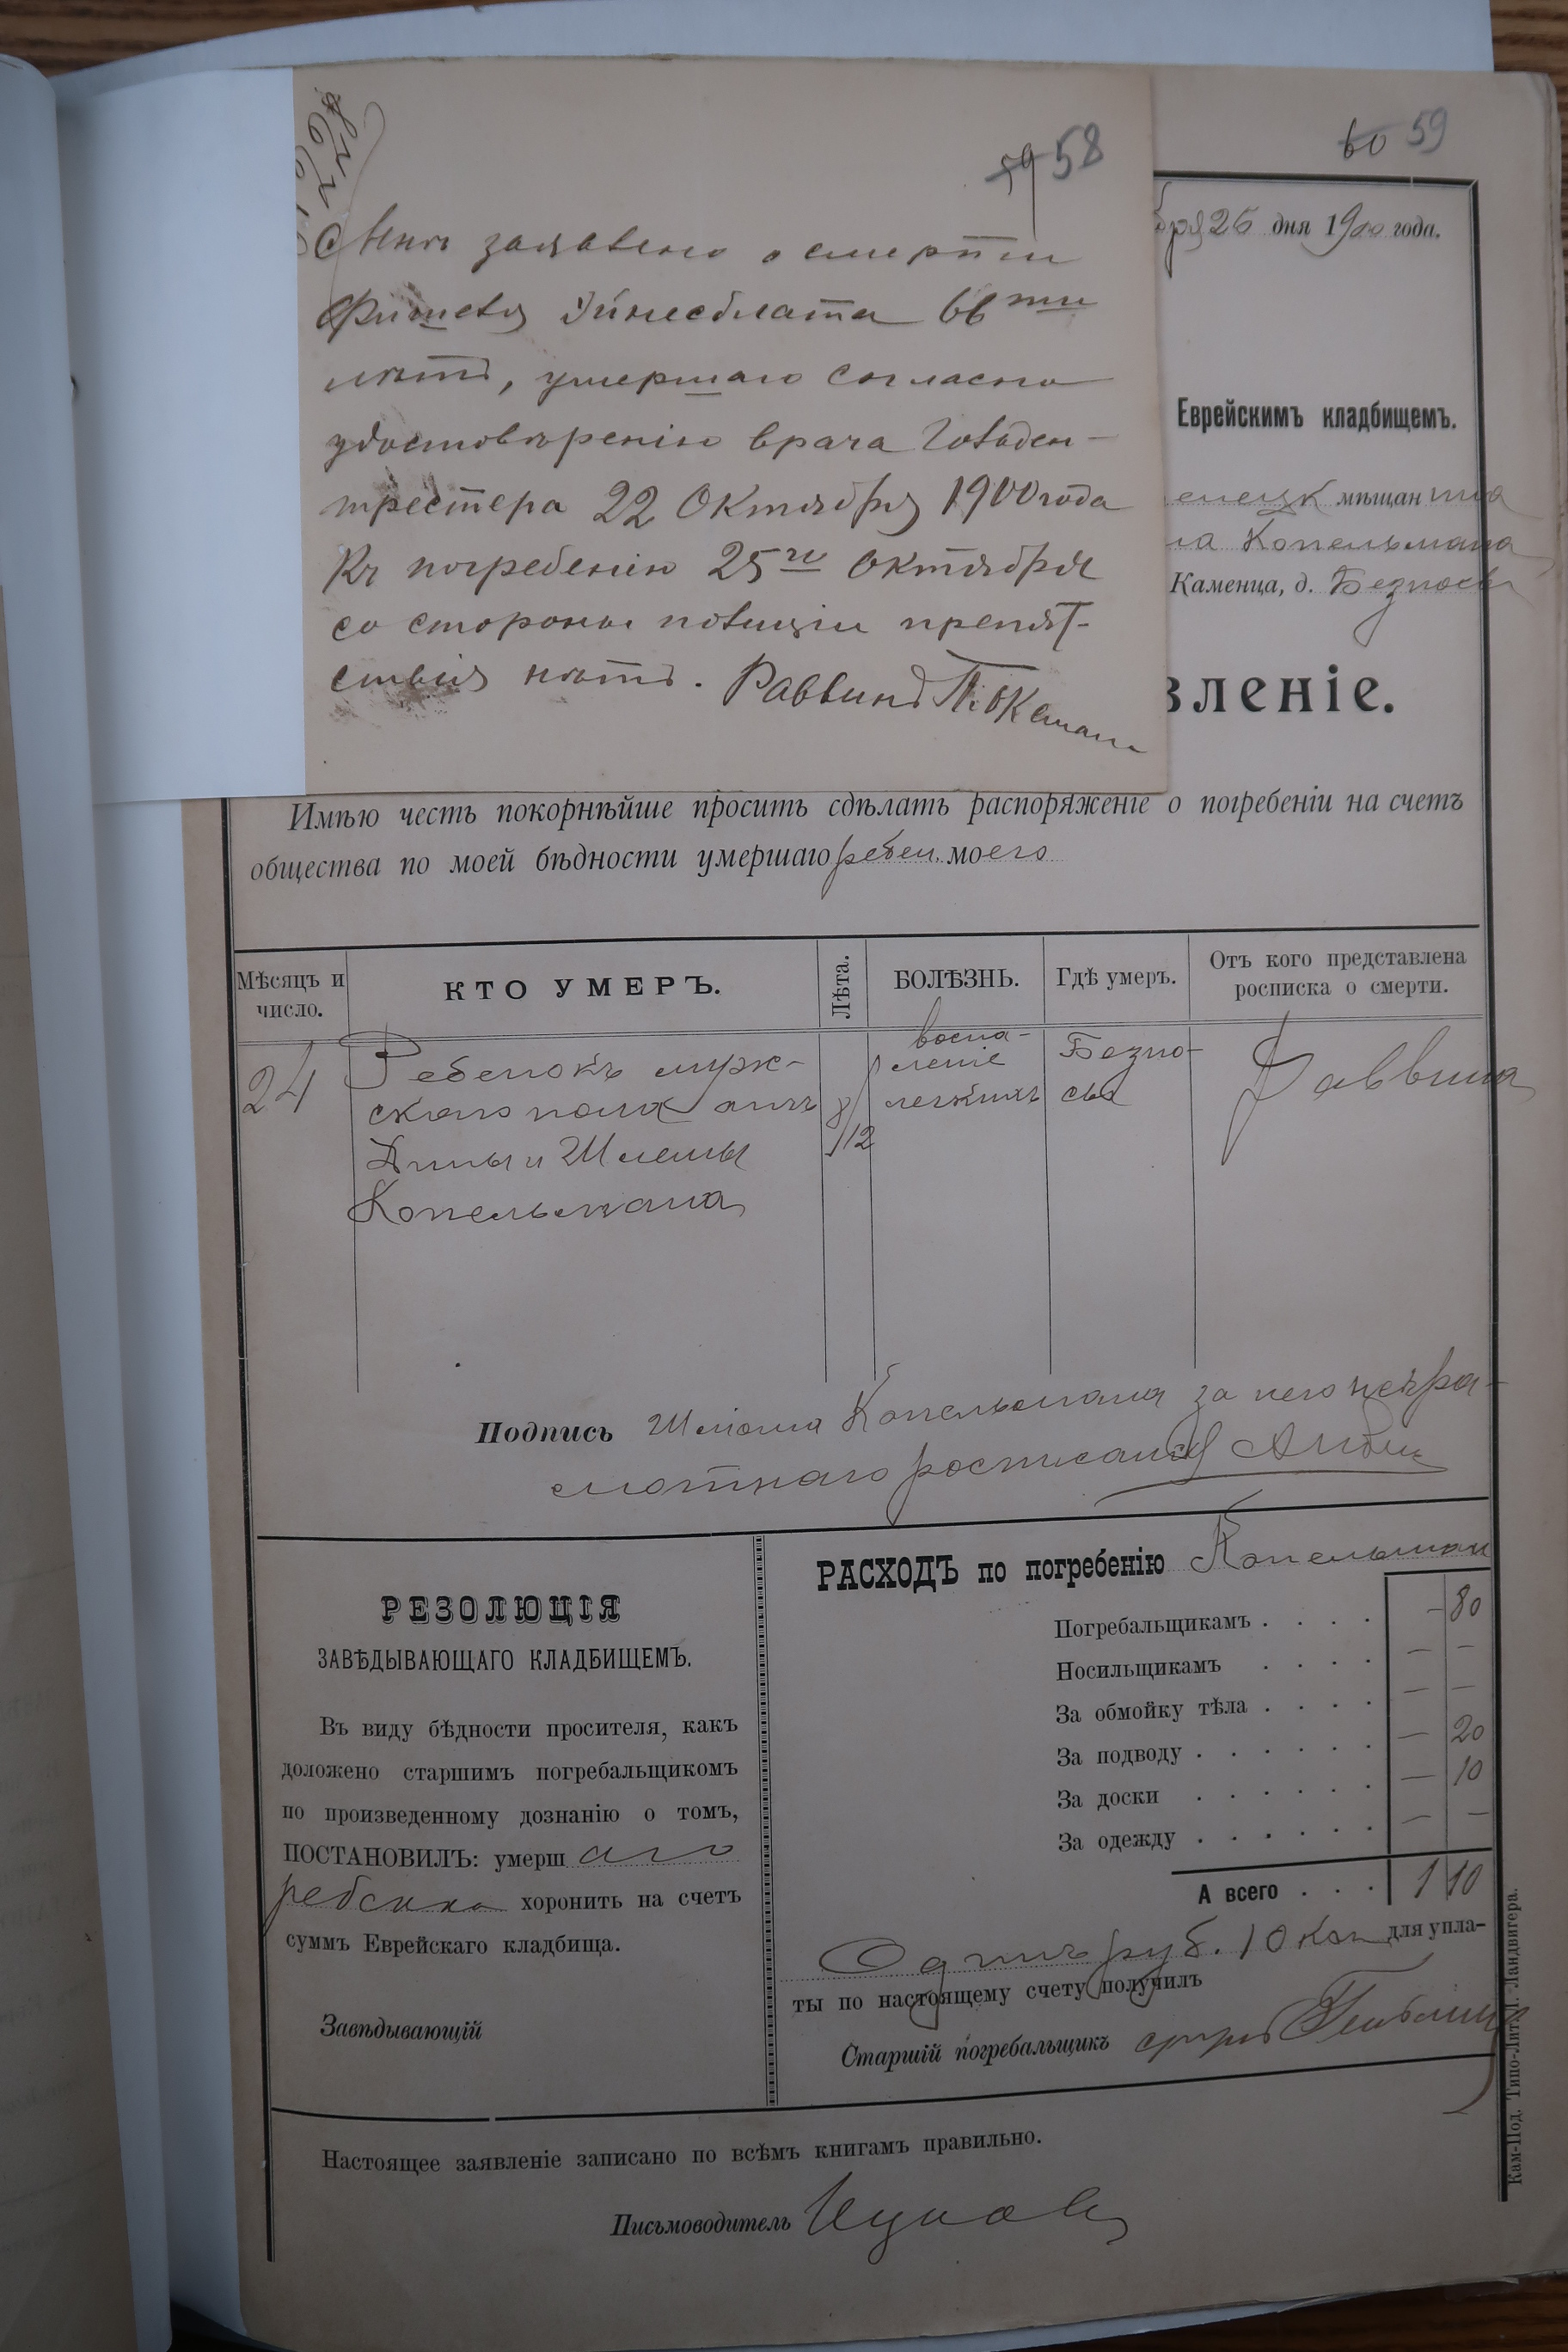 59 58
Мнѣ заявлено о смерти
Фишеля Эйнесблата 66 ти
лѣтъ, умершаго согласно
удостовѣренію врача
22 Октября 1900 года
Къ погребенію 25 го Октября
со стороны полиціи препят-
ствія нѣтъ. Раввинъ
60 59
бря 26 дня 1900 года.
Еврейскимъ кладбищемъ.
енецк мѣщанина
на Копельмана
Каменца, д. Безносы
вленіе.
Имѣю честь покорнѣйше просить сдѣлать распоряженіе о погребеніи на счетъ
общества по моей бѣдности умершаго ребен. моего
Мѣсяцъ и число.
КТО УМЕРЪ.
Лѣта.
БОЛѢЗНЬ.
Гдѣ умеръ.
Отъ кого представлена росписка о смерти.
24
Ребенокъ муж-
скаго пола отъ
и Шлемы
Копельмана
8/12
воспа-
леніе
легкихъ
Безно-
сы
Раввина
Подпись Шлома Копельмана за него негра-
мотнаго росписался
РЕЗОЛЮЦІЯ
ЗАВѢДЫВАЮЩАГО КЛАДБИЩЕМЪ.
Въ виду бѣдности просителя, какъ
доложено старшимъ погребальщикомъ
по произведенному дознанію о томъ,
ПОСТАНОВИЛЪ: умершаго
ребенка хоронить на счетъ
суммъ Еврейскаго кладбища.
Завѣдывающій
РАСХОДЪ по погребенію Копельман
Погребальщикамъ . . . . — 80
Носильщикамъ . . . . — —
За обмойку тѣла . . . . — —
За подводу . . . . . . — 20
За доски . . . . . . — 10
За одежду . . . . . . — —
А всего . . . 1 10
Одинъ руб. 10 коп для упла-
ты по настоящему счету получилъ
Старшій погребальщикъ
Настоящее заявленіе записано по всѣмъ книгамъ правильно.
Письмоводитель
Кам-Под. Типо-Лит. Л. Ландвигера.